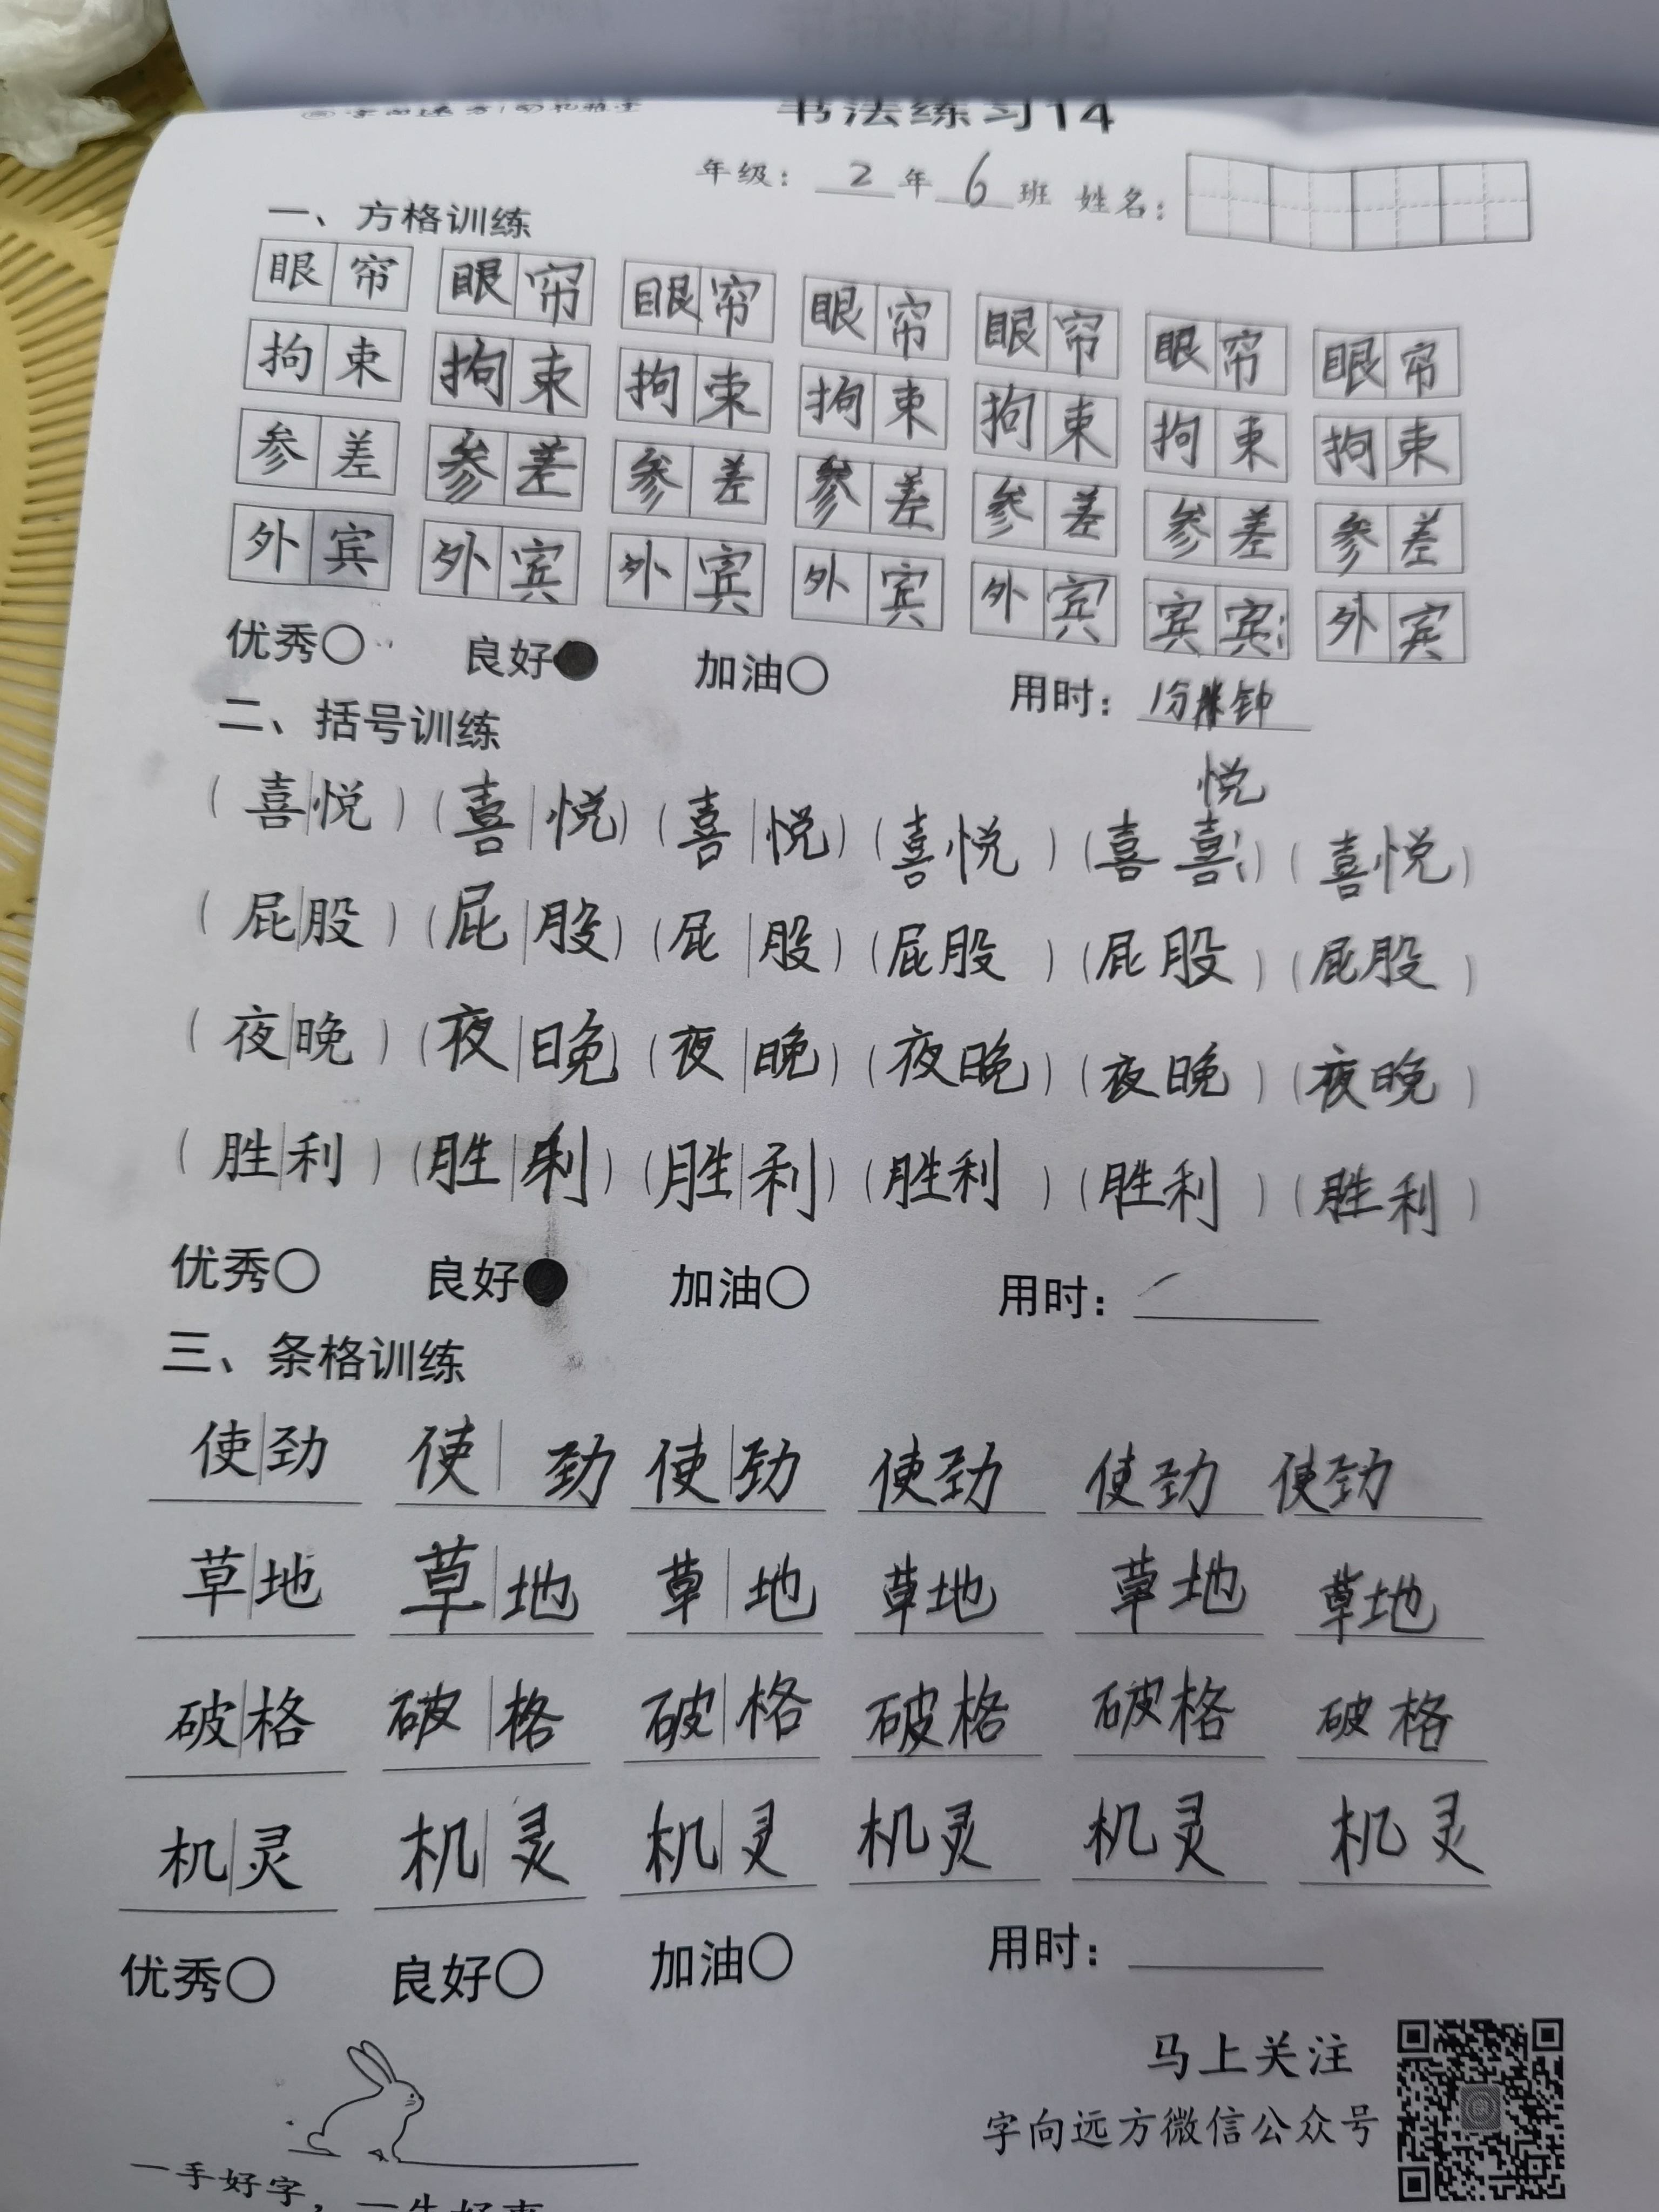 书法练习14
年级： 2 年 6 班 姓名：
一、方格训练
眼帘 眼帘 眼帘 眼帘 眼帘 眼帘 眼帘
拘束 拘束 拘束 拘束 拘束 拘束 拘束
参差 参差 参差 参差 参差 参差 参差
外宾 外宾 外宾 外宾 外宾 宾宾 外宾
优秀○ 良好● 加油○ 用时：1分 钟
二、括号训练
悦
（喜|悦）（喜|悦）（喜|悦）（喜悦）（喜喜）（喜悦）
（屁|股）（屁|股）（屁|股）（屁股）（屁股）（屁股）
（夜|晚）（夜|晚）（夜|晚）（夜晚）（夜晚）（夜晚）
（胜|利）（胜|利）（胜|利）（胜利）（胜利）（胜利）
优秀○ 良好● 加油○ 用时：
三、条格训练
使|劲 使|劲 使|劲 使劲 使劲 使劲
草|地 草|地 草|地 草地 草地 草地
破|格 破|格 破|格 破格 破格 破格
机|灵 机|灵 机|灵 机灵 机灵 机灵
优秀○ 良好○ 加油○ 用时：
马上关注
字向远方微信公众号
一手好字，一生好